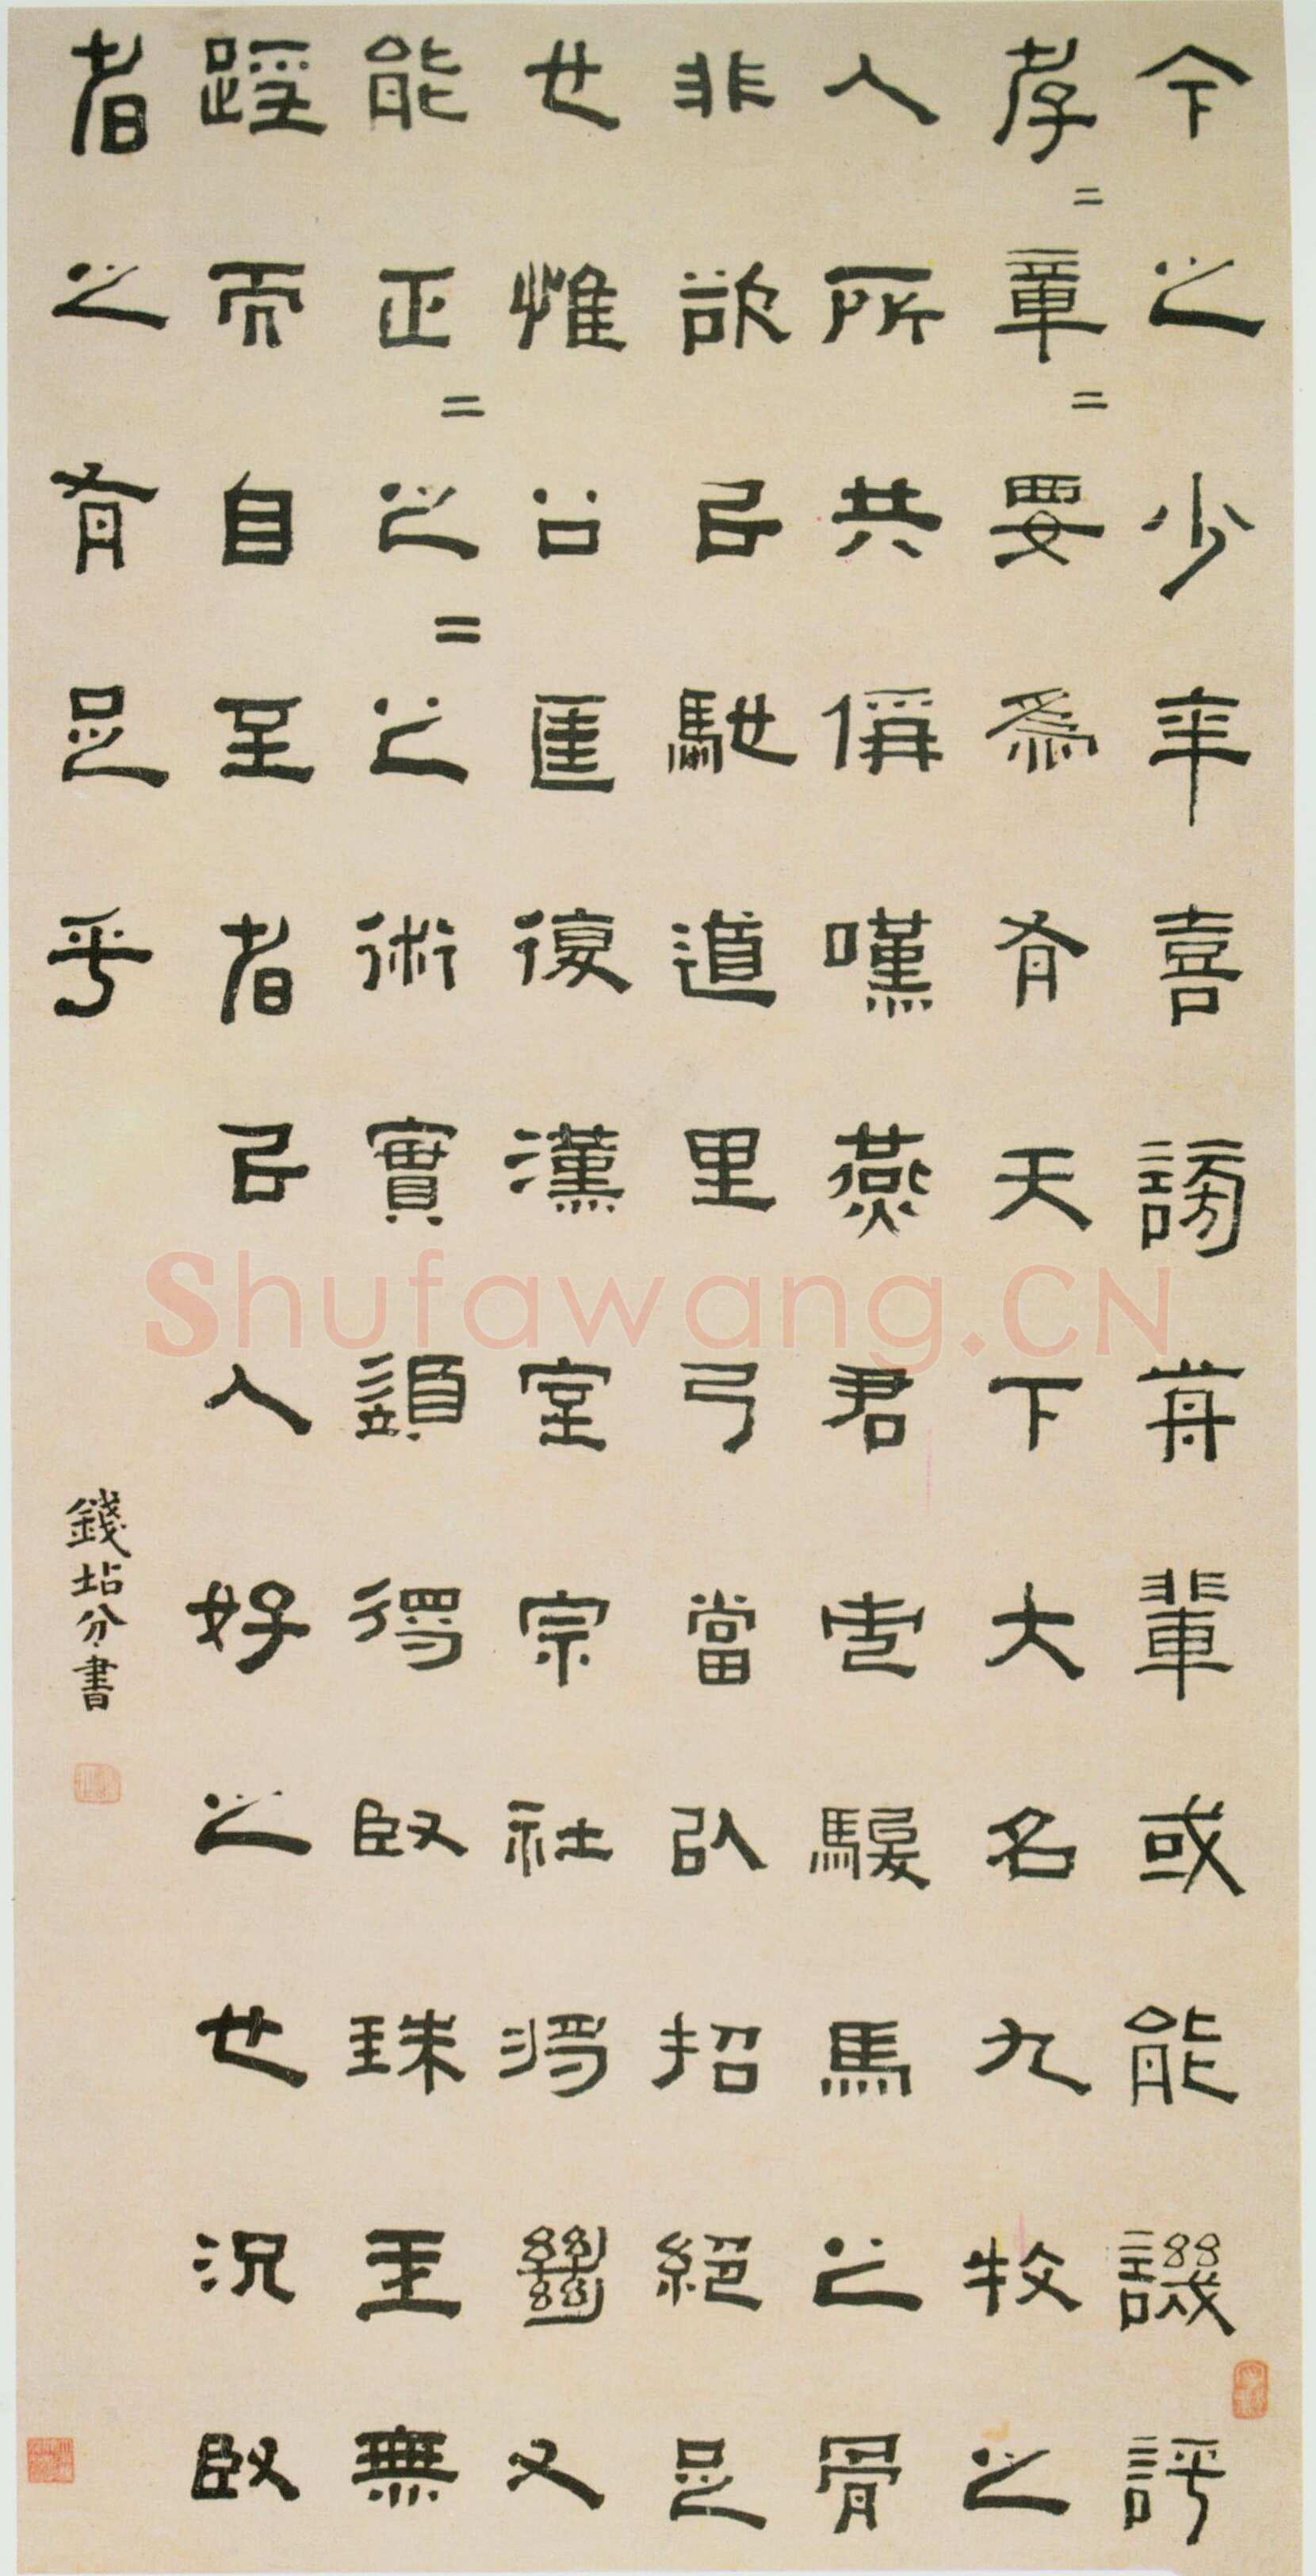 今之少年喜謗歬輩或能譏評
孝=章=要為有天下大名九牧之
人所共偁嘆燕君市駿馬之骨
非欲㠯馳道里乃當㠯招絕足
也惟公匡復漢室宗社將㡭又
能正=之=之術實須得臤珠玉無
踁而自至者㠯人好之也況臤
者之有足乎
錢坫分書
Shufawang.CN